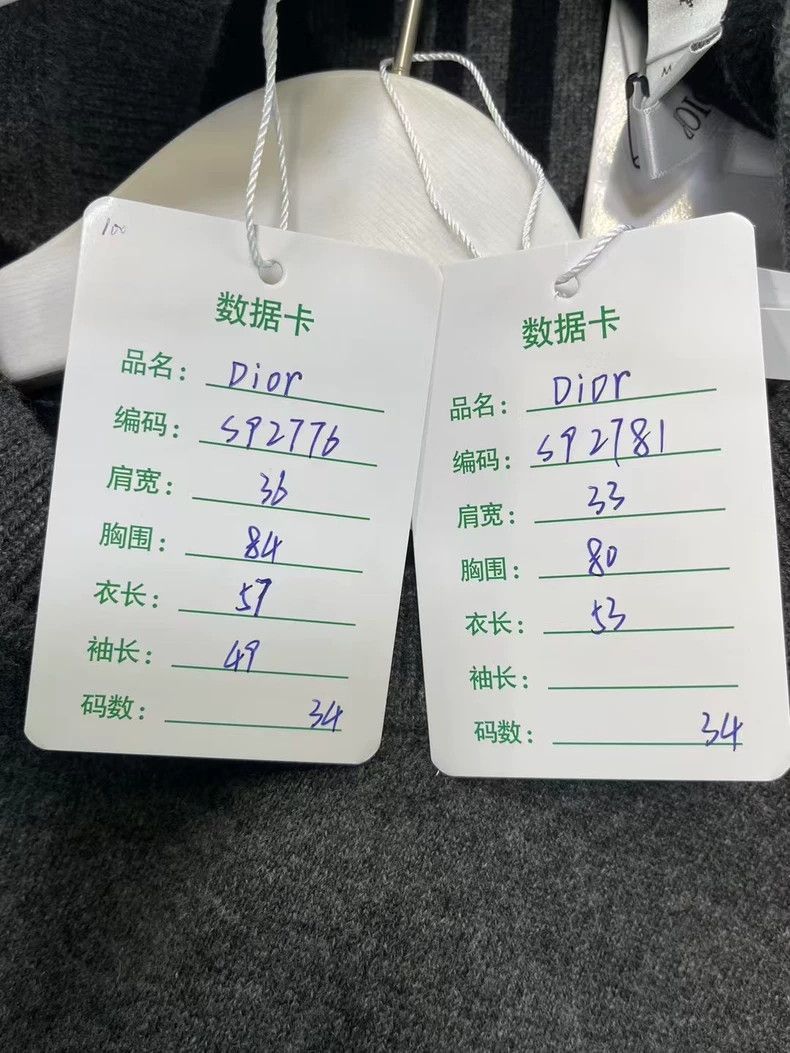 M
100
数据卡
品名： Dior
编码： S92776
肩宽： 36
胸围： 84
衣长： 57
袖长： 49
码数： 34
数据卡
品名： Dior
编码： S92781
肩宽： 33
胸围： 80
衣长： 53
袖长：
码数： 34